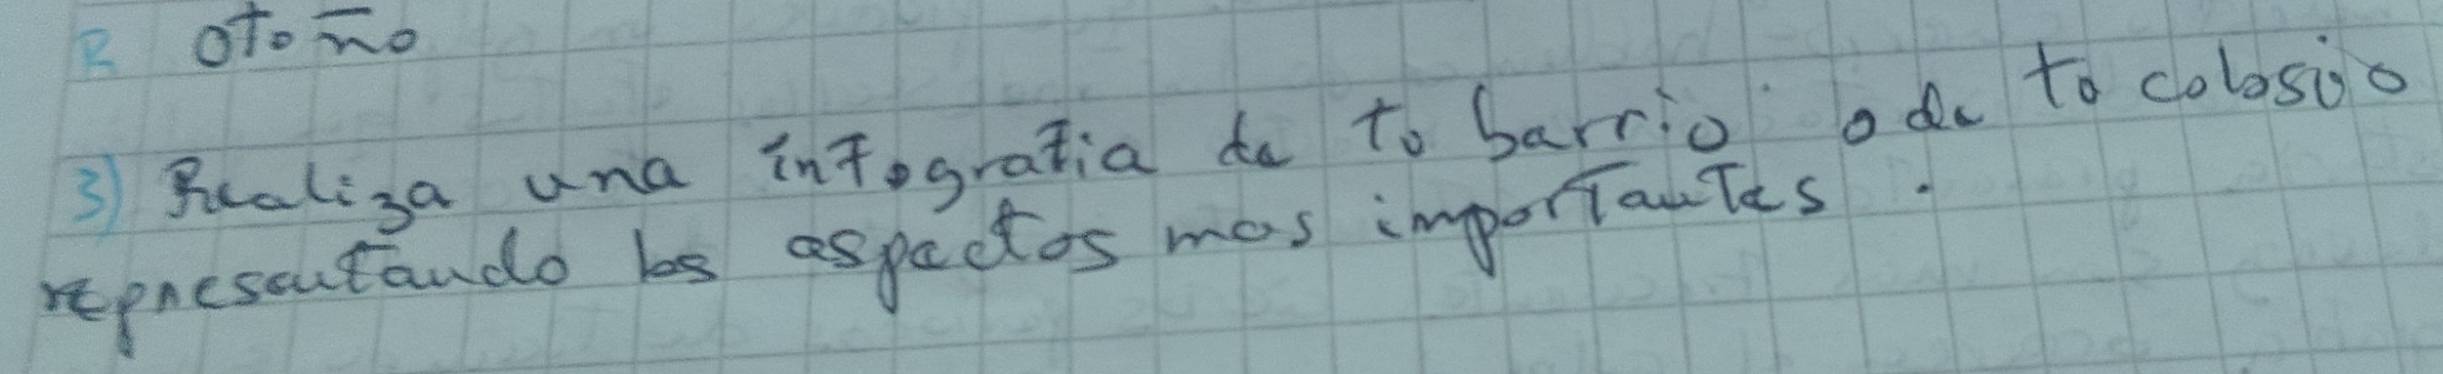 R otoño
3) Realiza una infografia de tu barrio o de tu colosio
representando los aspectos mas importantes.